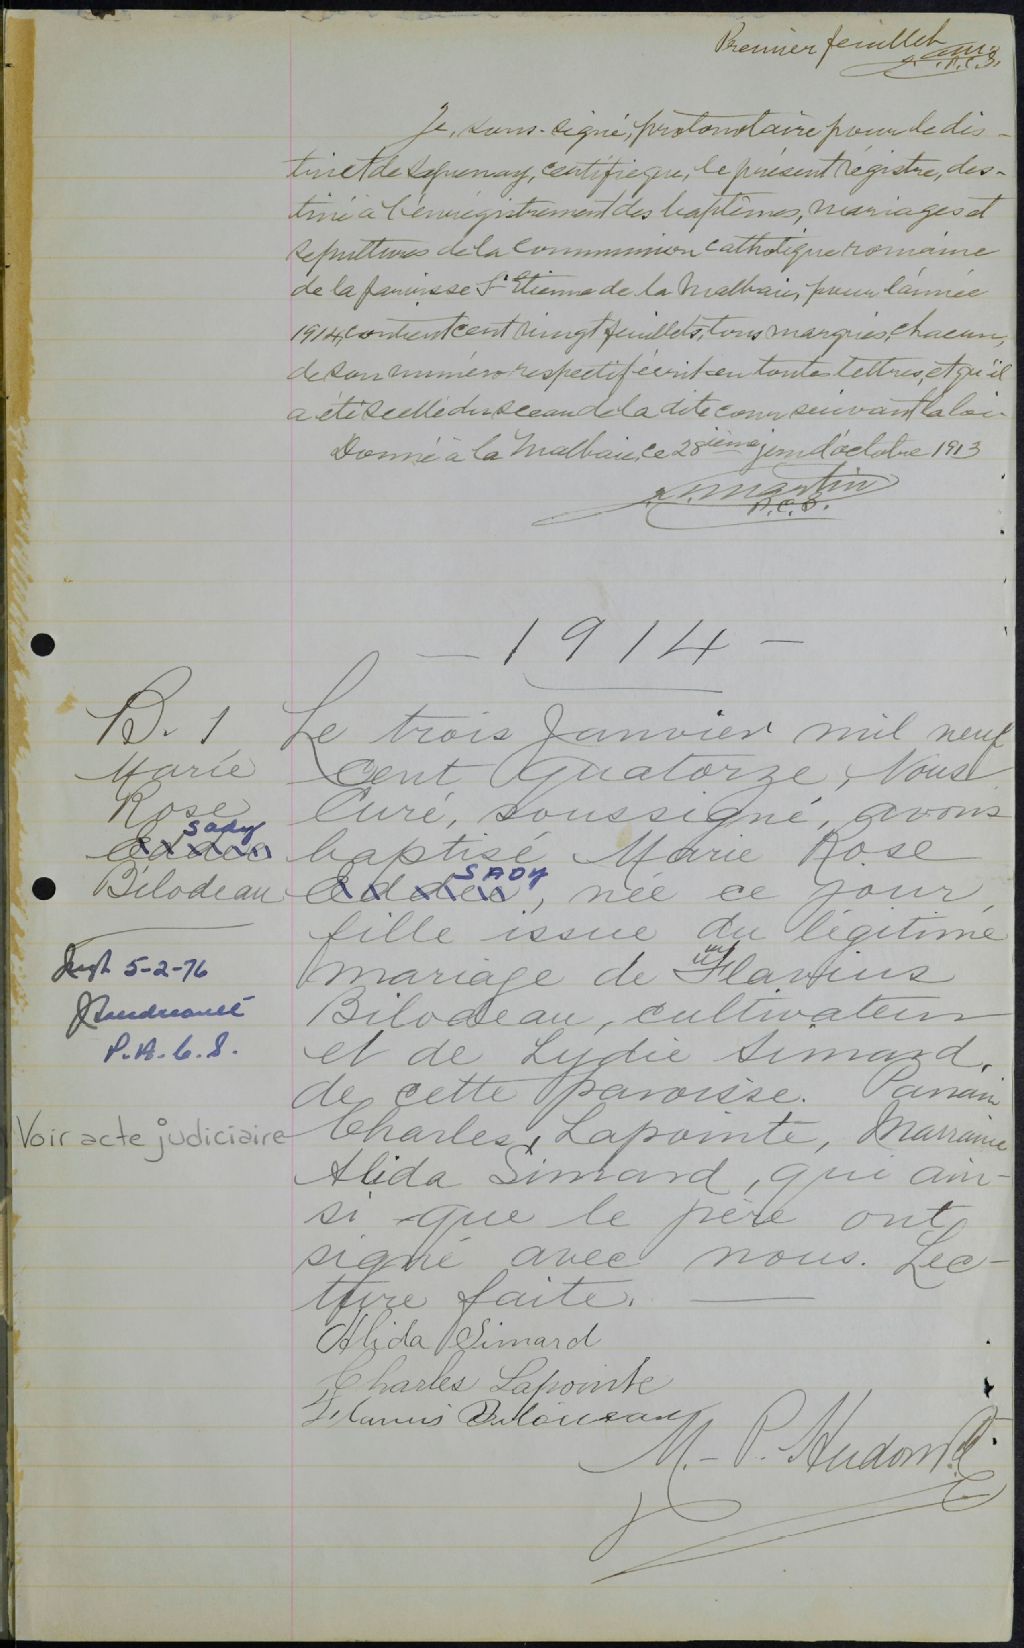 Premier feuillet
P.C.S.
Je, sous-signé, protonotaire pour le dis-
trict de Saguenay, certifie que, le présent régistre, des-
tiné à l'enrégistrement des baptêmes, mariages et
sepultures de la Communion Catholique romaine
de la paroisse St Etienne de la Malbaie, pour l'année
1914, contient cent vingt feuillets, tous marqués, chacun,
de son numéro respectif écrit en toutes lettres, et qu'il
a été scellé du sceau de la dite cour suivant la loi.
Donné à la Malbaie, ce 28ième jour d'octobre 1913
Martin
P.C.S.
- 1914 -
B. 1
Marie
Rose
Sady
Bilodeau
Le trois Janvier mil neuf
cent quatorze, Nous
Curé, soussigné, avons
baptisé Marie Rose
SADY, née ce jour,
fille issue du légitime
mariage de Flavius
Bilodeau, cultivateur
et de Lydie Simard,
de cette paroisse. Parrain
Charles Lapointe, Marraine
Alida Simard, qui ain-
si que le père ont
signé avec nous. Lec-
ture faite.
5-2-76
P.A.C.S.
Voir acte judiciaire
Alida Simard
Charles Lapointe
Bilodeau
M.-P. Hudon